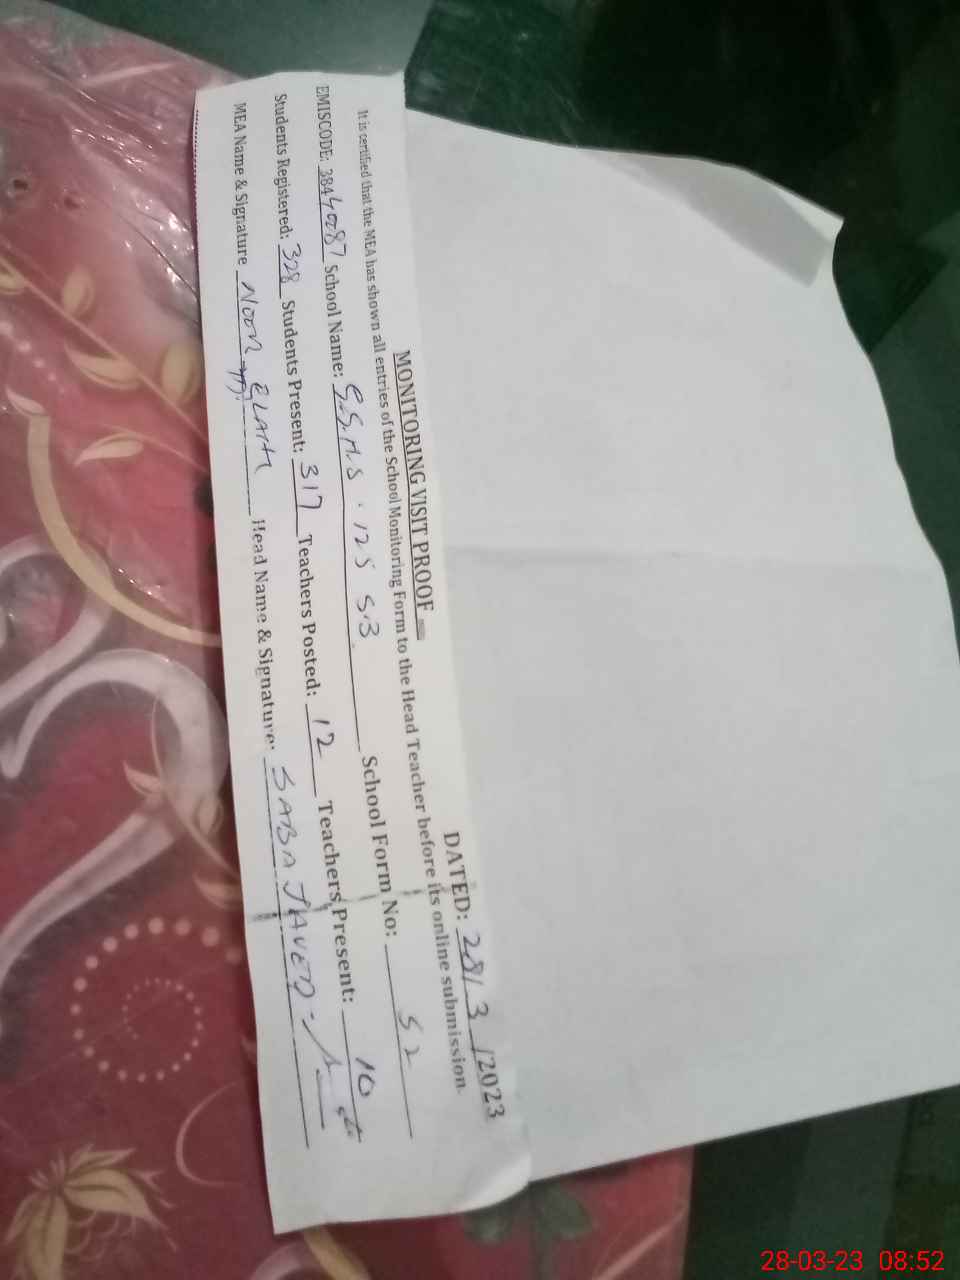 MONITORING VISIT PROOF
DATED: 28/ 3 /2023
It is certified that the MEA has shown all entries of the School Monitoring Form to the Head Teacher before its online submission.
EMISCODE: 38440087 School Name: G.G.M.S . 125 S.B School Form No: 52
Students Registered: 328 Students Present: 317 Teachers Posted: 12 Teachers Present: 10
MEA Name & Signature NOOR ELAHI Head Name & Signature: SABA JAVED
28-03-23 08:52